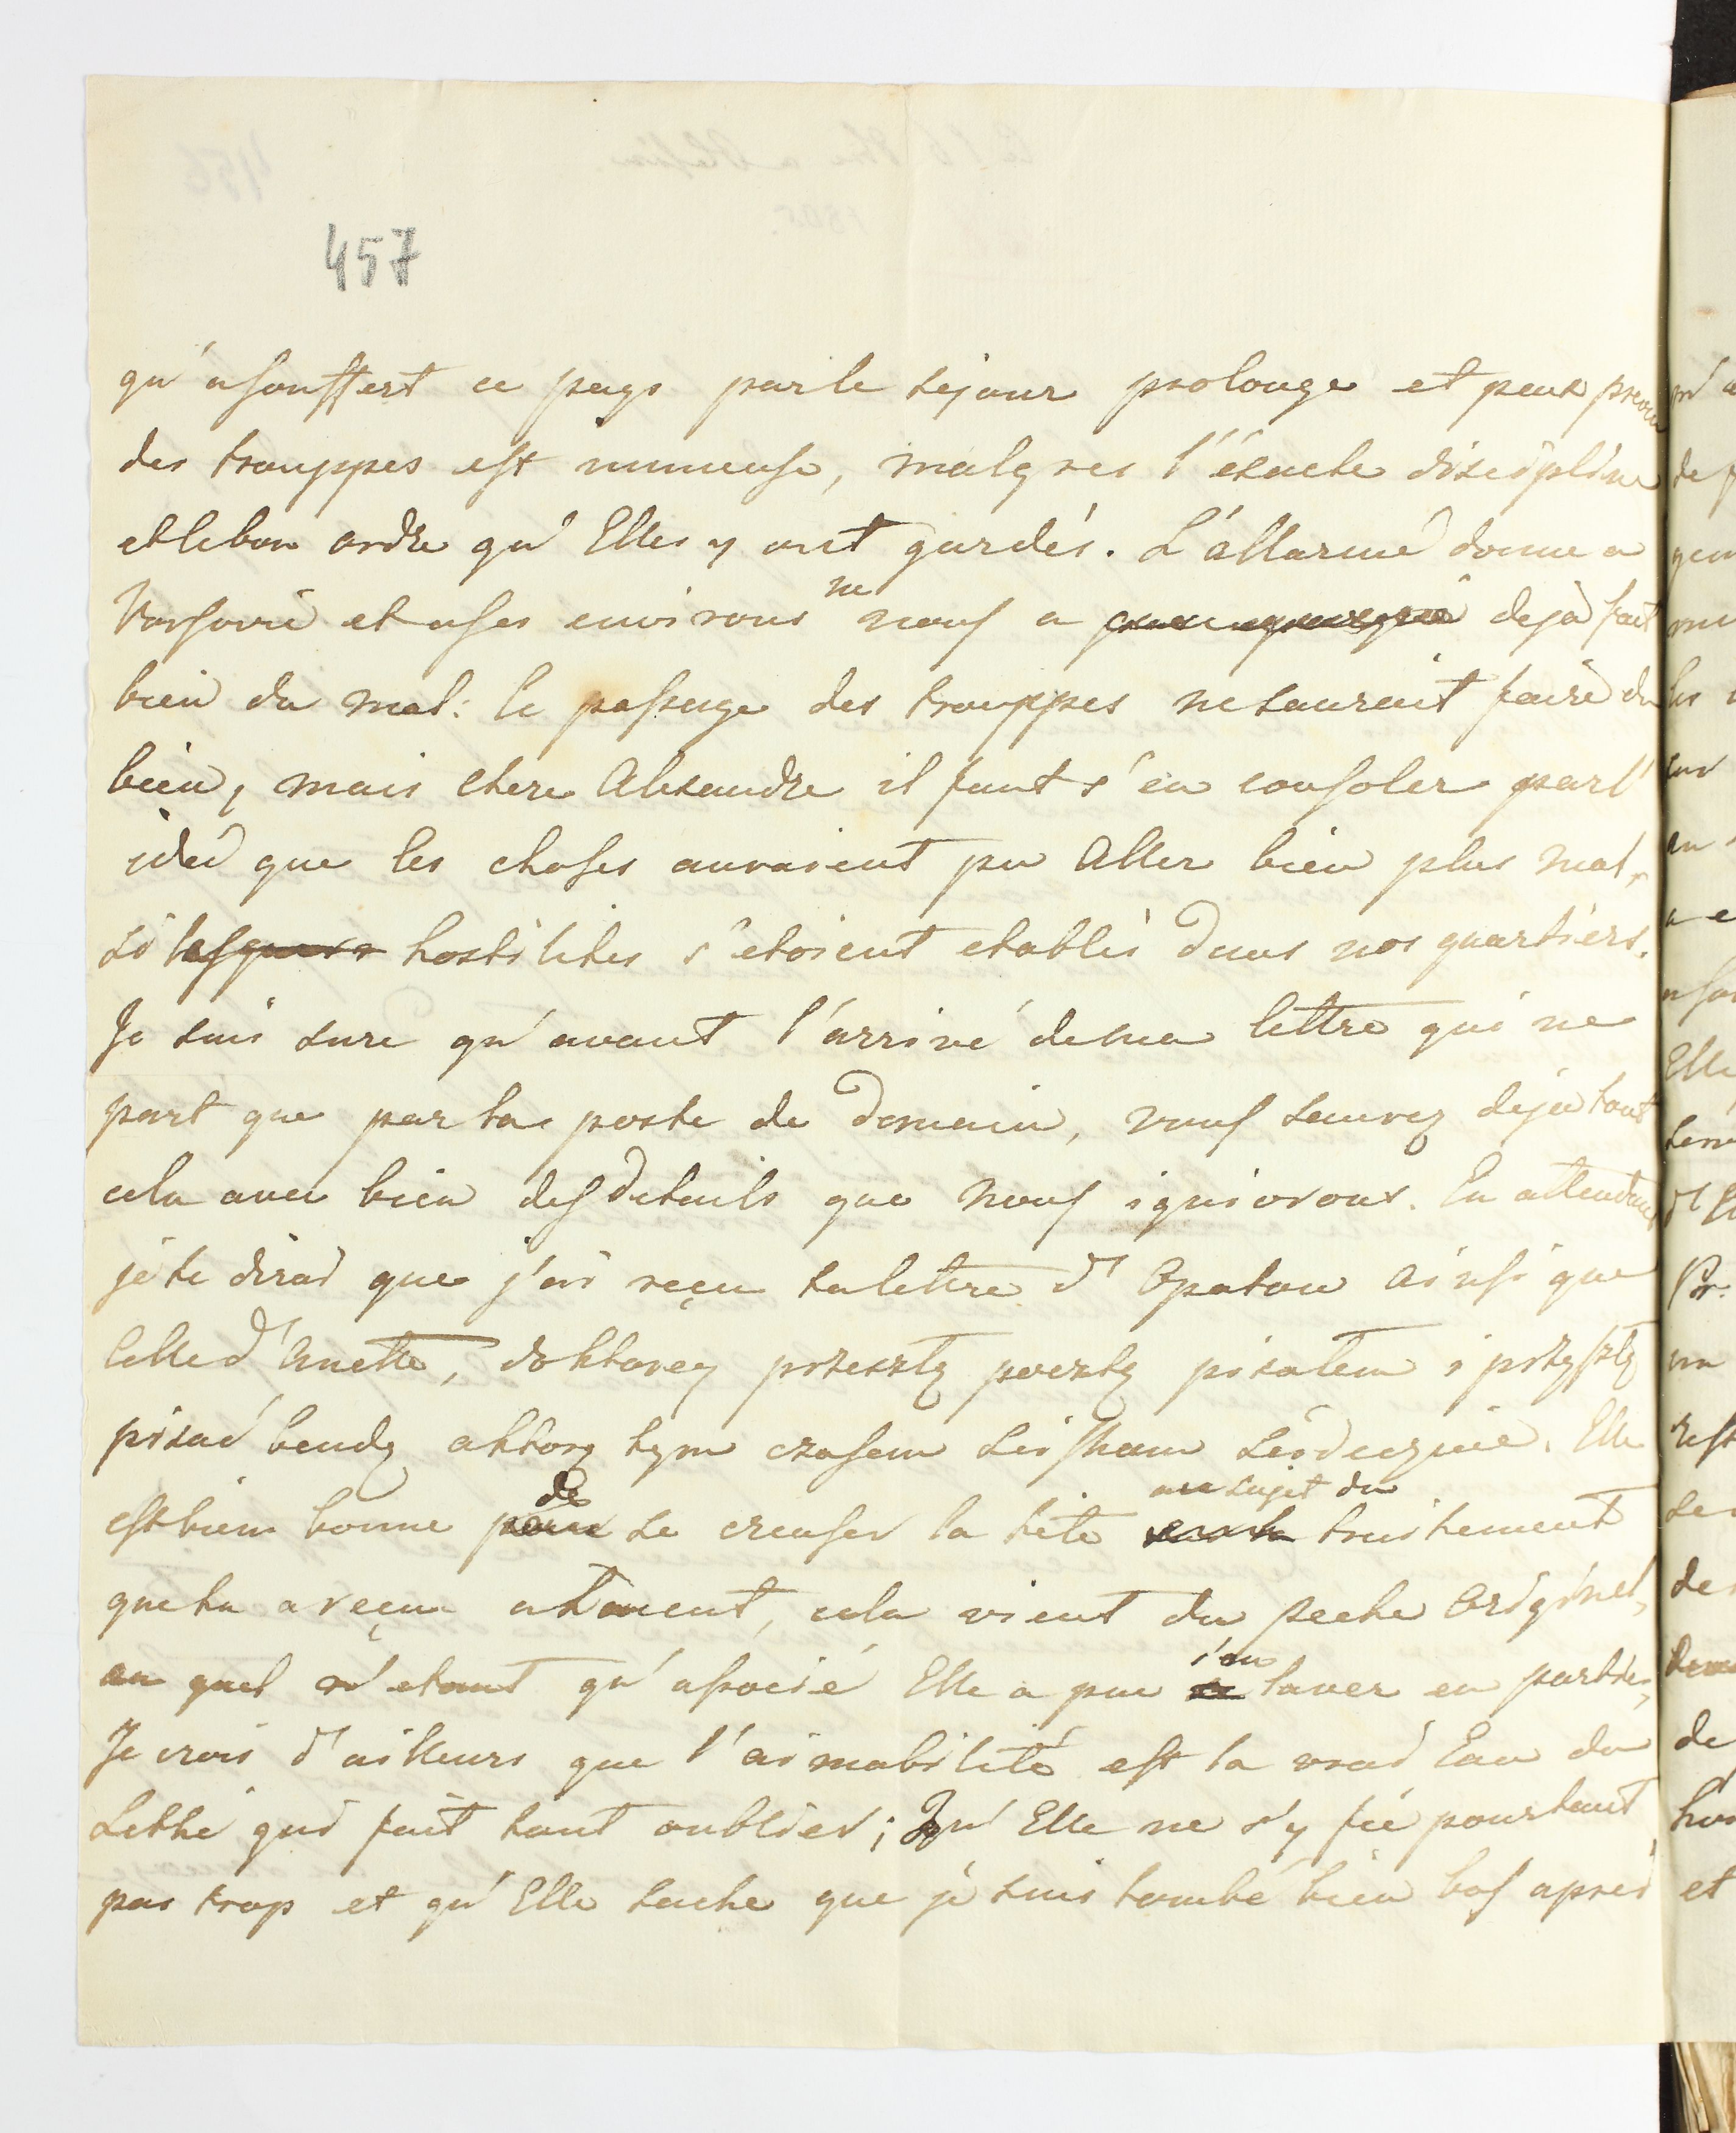 457
qu'a souffert ce pays par le sejour prolonge et peux prevu
des trouppes est immense, malgres l'éxacte discipline
et le bon ordre qu'Elles y ont gardés. L'állarme donne a
Varsovie et a ses environs ne nous a deja fait
bien du mal: le passage des trouppes ne saurait faire du
bien, mais chere Alexandre il faut s'en consoler par l'
ideé que les choses auraient pu Aller bien plus mal,
si les hostilites s'etoient etablis dans nos quartiers.
Je suis sure qu'avant l'arrivé de ma lettre qui ne
part que par la poste de Demain, vous saurez deja tout
cela avec bien des Details que nous ignorons. En attendant
je te dirai que j'ai reçu ta lettre d'Opatow ainsi que
Celle d'Anette, do ktorey przeszlą pocztą pisalem i przyszlą
pisać bendę a ktorą tym czasem sciskam serdecznie. Elle
est bien bonne de se creuser la tête au sujet du traitement
que ta a reçu cela vient du peche Original,
au quel n'etant qu'associé Elle a pue s'en laver en partie,
Je crois d'ailleurs que l'aimabilité est la vrai Eau du
Lethé qui fait tant oublier; Qu'Elle ne s'y fié pourtant
pas trop et qu'Elle sache que je suis tombé bien bas apres